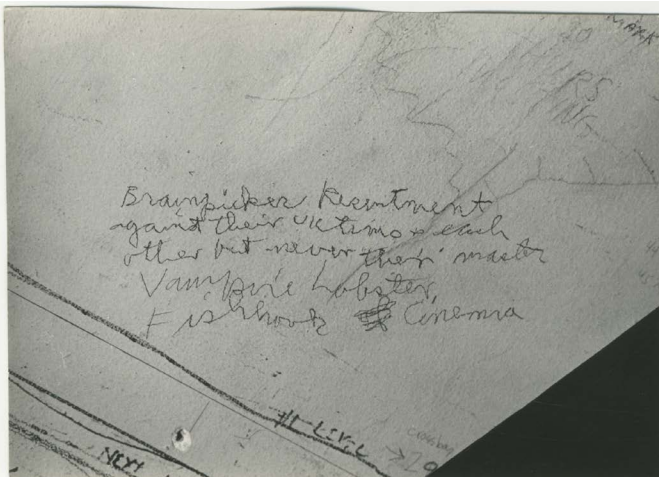 MARK
Brainpicker Resentment
against their victims + each
other but never their master
Vampire Lobster
Fishhook Cinema
#1 LEVEL → 20
NEXT